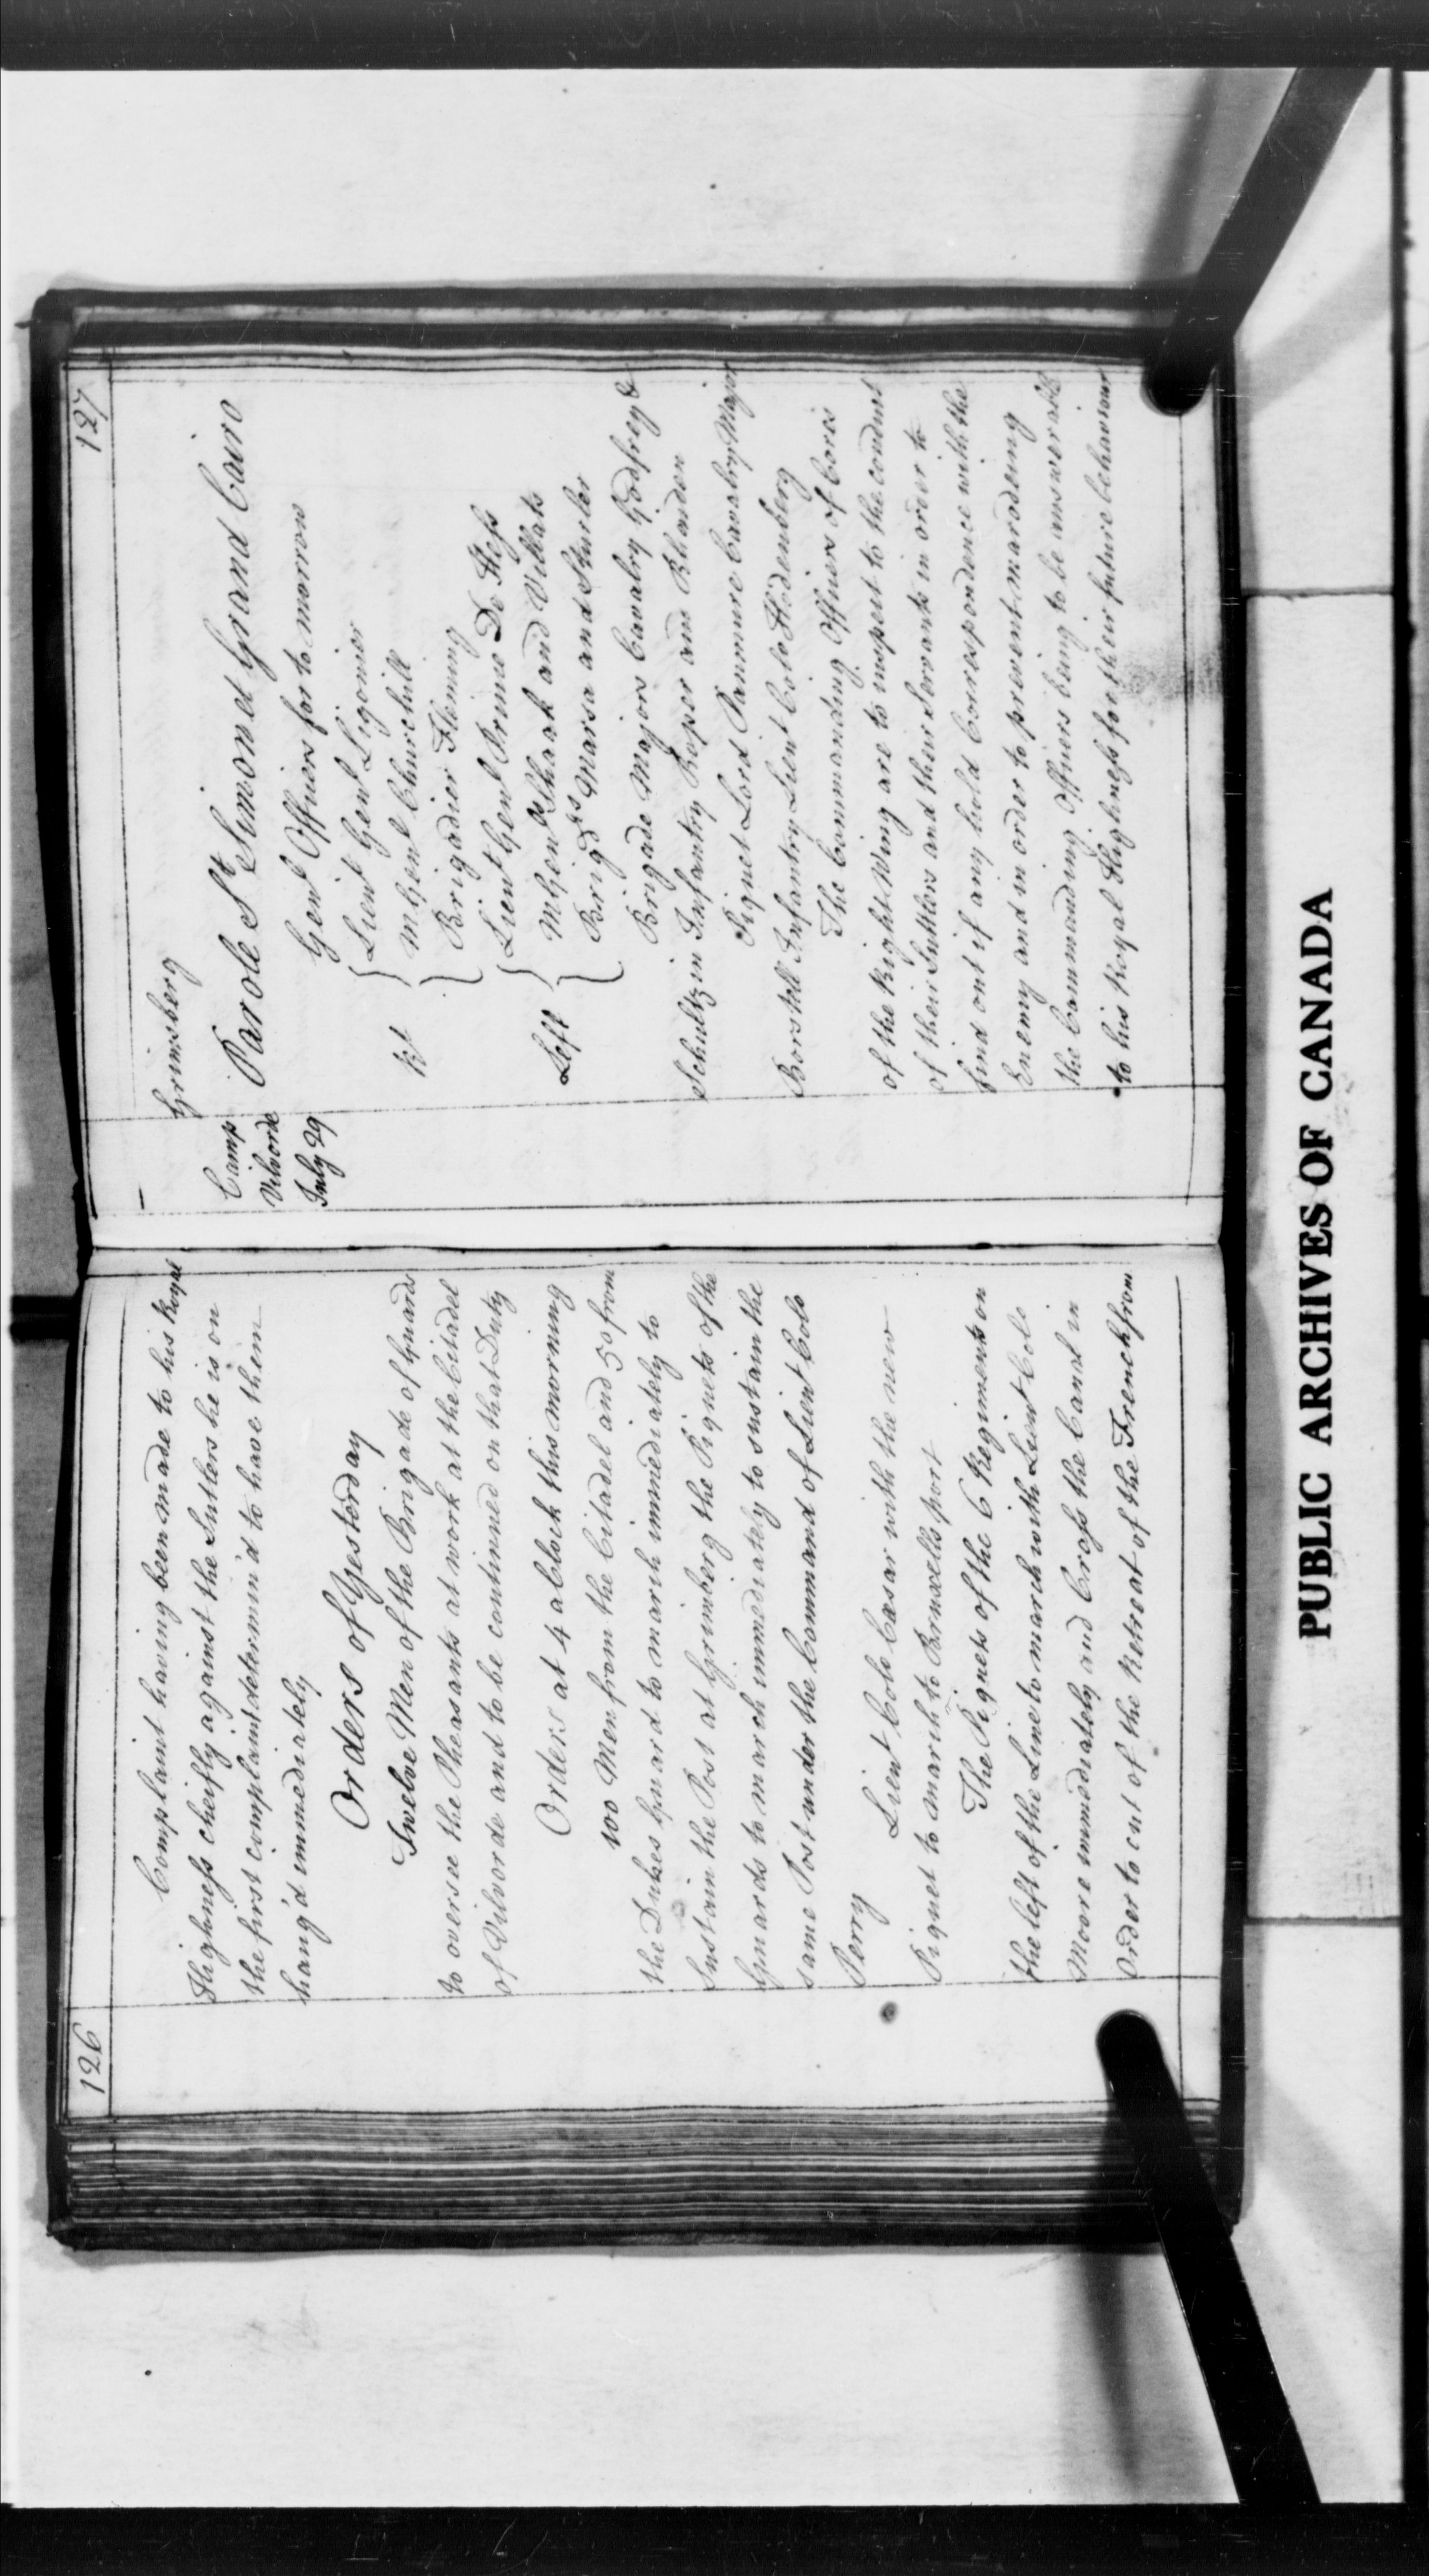 126
Complaint having been made to his Royal
Highness cheifly against the Sutlers he is on
the first complaint determin'd to have them
hang'd immediately
Orders of Yesterday
Twelve Men of the Brigade of Guards
to oversee the Pheasants at work at the Citadel
of Vilvorde and to be continued on that Duty
Orders at 4 a Clock this morning
100 Men from the Citadel and 50 from
the Dukes Guard to march immediately to
Sustain the Post at Grimberg the Piquets of the
Guards to march immediately to sustain the
same Post under the Command of Lieut Colo
Perry
Lieut Colo Cæsar with the new
Piquet to march to Bruxells port
The Piquets of the 6 Regiments on
the left of the Line to march with Lieut Colo
Moore immediately and Cross the Canal in
Order to cut of the Retreat of the French from
127
Grimsberg
Camp
Vilvorde
July 29
Parole St Simon et Grand Cairo
Genl Officers for to morrow
Rt
Lieut Genl Ligonier
M Genl Churchill
Brigadier Fleming
Left
Lieut Genl Prince De Hess
M Genls Chaak and Vilkats
Brigdrs Marsa and Sturler
Brigade Majors Cavalry Godfrey &
Schultz in Infantry Roper and Rhorden
Piquet Lord Panmure Cavalry Major
Borstell Infantry Lieut Colo Hodenberg
The Commanding Officers of Corps
of the Right Wing are to inspect to the conduct
of their Suttlers and their Servants in order to
find out if any hold Correspondence with the
Enemy and in order to prevent marodeing
the Commanding Officers being to be answerable
to his Royal Highness for their future behaviour
PUBLIC ARCHIVES OF CANADA